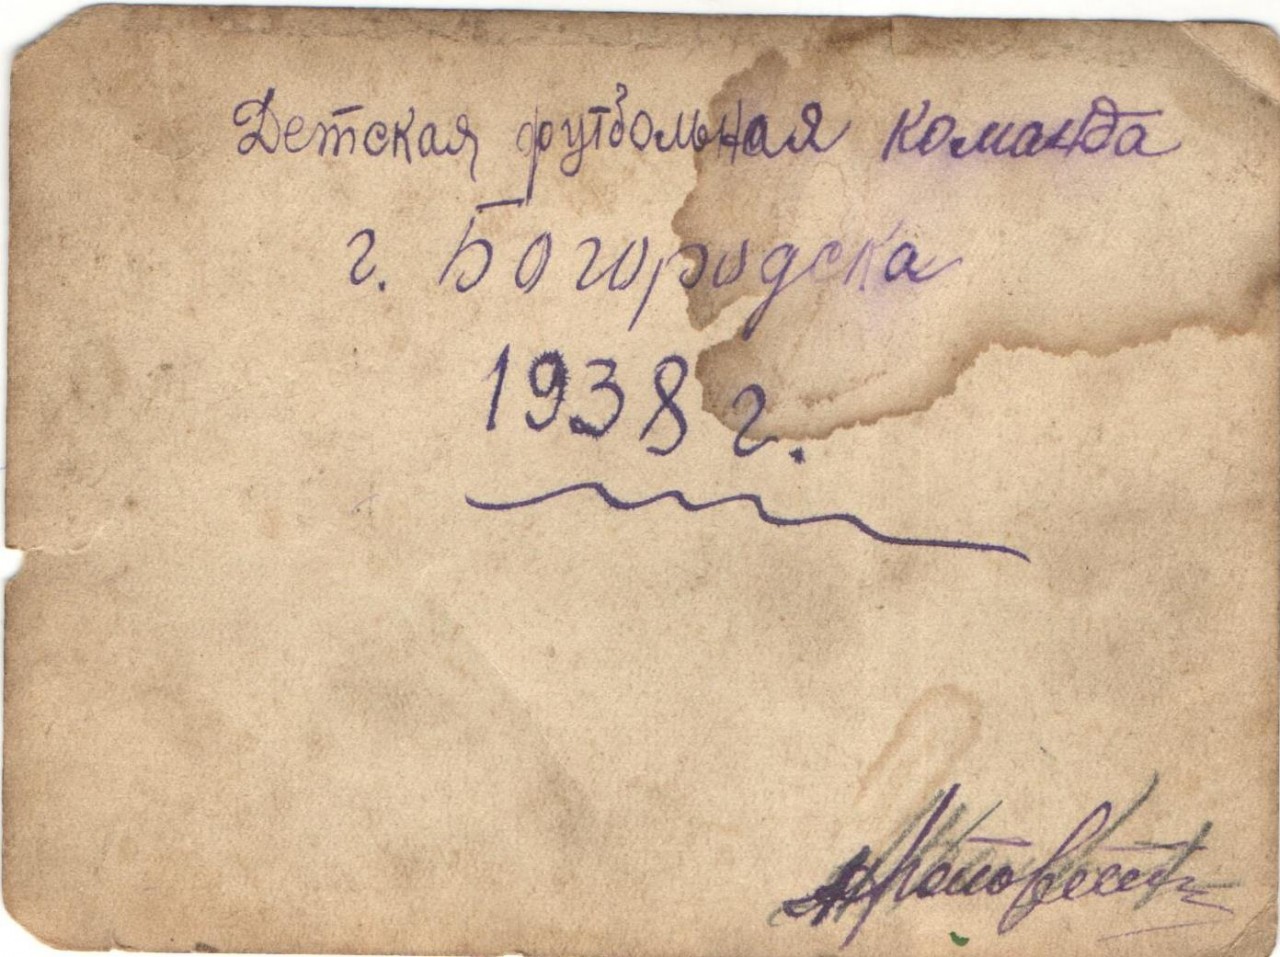 Детская футбольная команда
г. Богородска
1938 г.